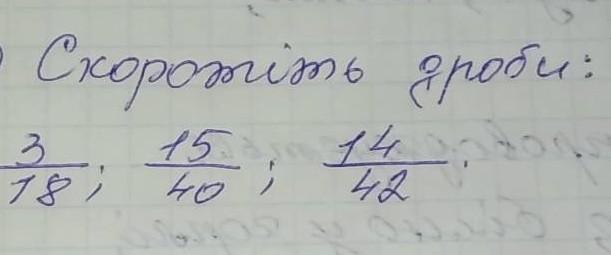 ) Скоротіть дроби:
3/18; 15/40; 14/42.